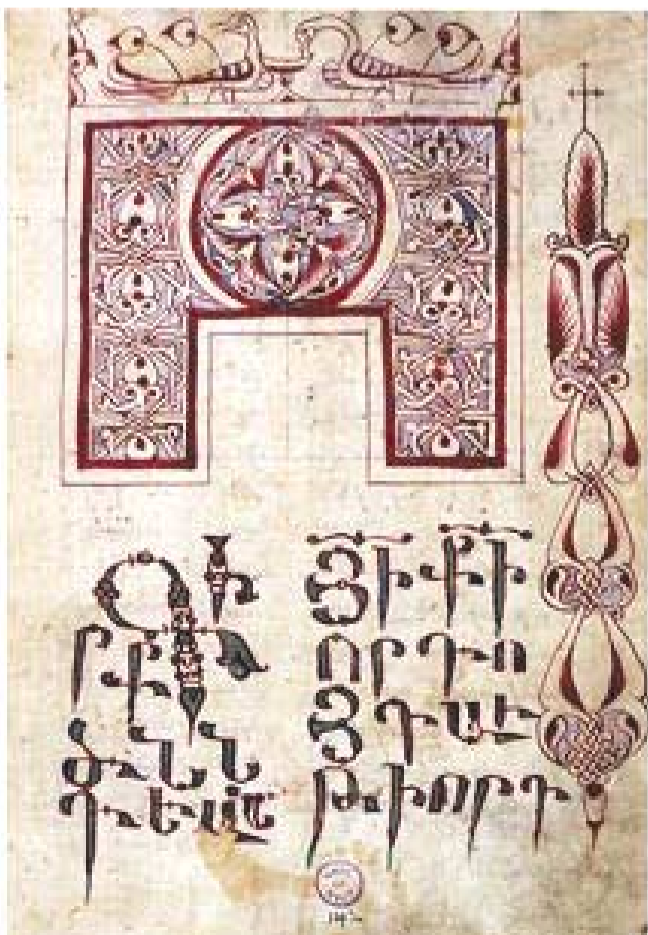 Գի
րք
ծնն
դեան
յի քի
որդո
յ դաւ
թի որդ